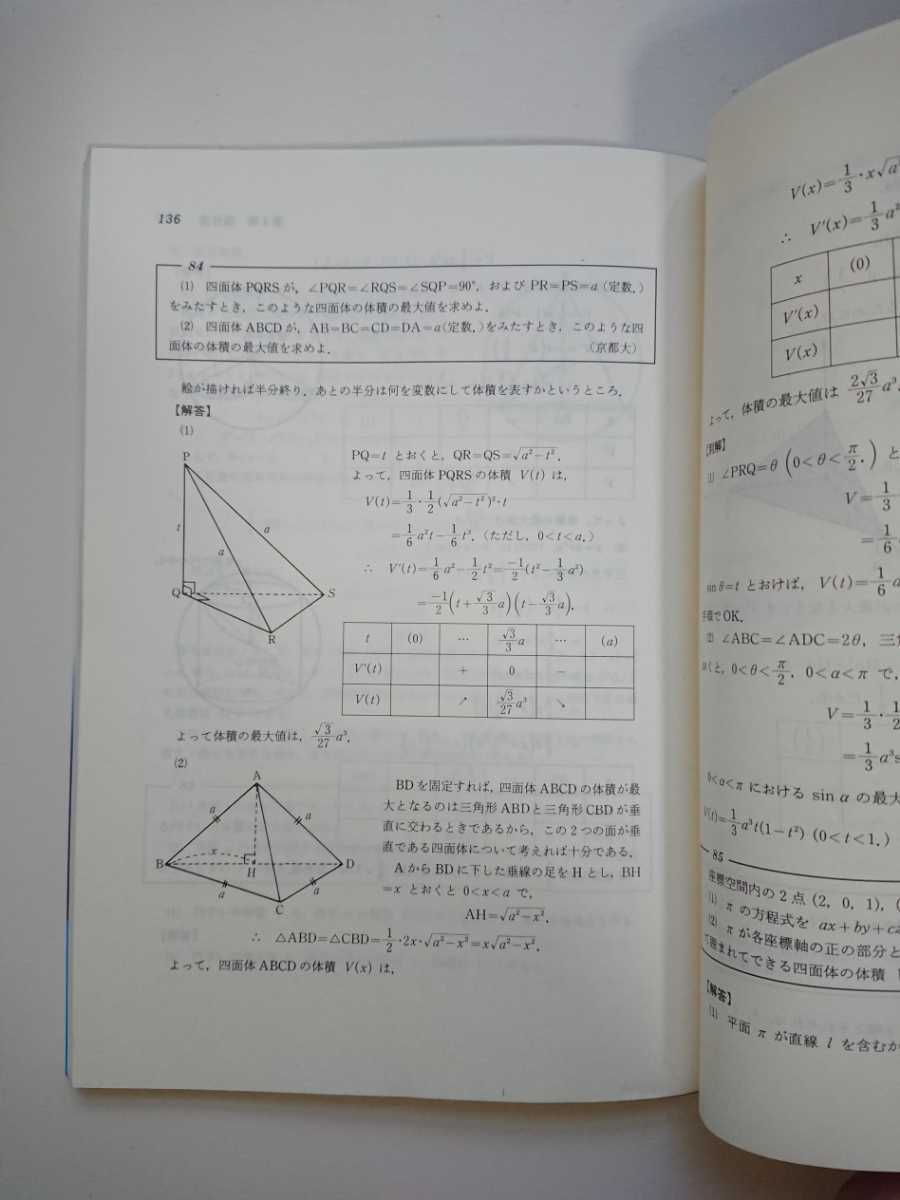 136
84
(1) 四面体 PQRS が，∠PQR=∠RQS=∠SQP=90°，および PR=PS=a (定数.)
をみたすとき，このような四面体の体積の最大値を求めよ．
(2) 四面体 ABCD が，AB=BC=CD=DA=a(定数.)をみたすとき，このような四
面体の体積の最大値を求めよ． (京都大)
絵が描ければ半分終り．あとの半分は何を変数にして体積を表すかというところ．
【解答】
(1)
P
t
a
a
Q
S
R
PQ=t とおくと，QR=QS=√(a²−t²).
よって，四面体 PQRS の体積 V(t) は，
V(t)=1/3・1/2(√(a²−t²))²・t
=1/6 a²t−1/6 t³．(ただし，0<t<a.)
∴ V'(t)=1/6 a²−1/2 t²=−1/2(t²−1/3 a²)
=−1/2(t+√3/3 a)(t−√3/3 a),
t (0) … √3/3 a … (a)
V'(t) + 0 −
V(t) ↗ √3/27 a³ ↘
よって体積の最大値は，√3/27 a³．
(2)
A
a
a
B
x
H
D
a
a
C
BD を固定すれば，四面体 ABCD の体積が最
大となるのは三角形 ABD と三角形 CBD が垂
直に交わるときであるから，この２つの面が垂
直である四面体について考えれば十分である．
A から BD に下した垂線の足を H とし，BH
=x とおくと 0<x<a で，
AH=√(a²−x²).
∴ △ABD=△CBD=1/2・2x・√(a²−x²)=x√(a²−x²).
よって，四面体 ABCD の体積 V(x) は，
V(x)=1/3・x√a
∴ V'(x)=1/3 a²
x (0)
V'(x)
V(x)
よって，体積の最大値は 2√3/27 a³.
【別解】
(1) ∠PRQ=θ (0<θ<π/2.) と
V=1/3
=1/6
sin θ=t とおけば，V(t)=1/6 a
でOK.
(2) ∠ABC=∠ADC=2θ，三
おくと，0<θ<π/2，0<α<π で，
V=1/3・1/2
=1/3 a³s
0<α<π における sin α の最大
V(t)=1/3 a³t(1−t²) (0<t<1.)
85
座標空間内の 2 点 (2, 0, 1), (
(1) π の方程式を ax+by+cz
(2) π が各座標軸の正の部分と
て囲まれてできる四面体の体積
【解答】
(1) 平面 π が直線 l を含むか